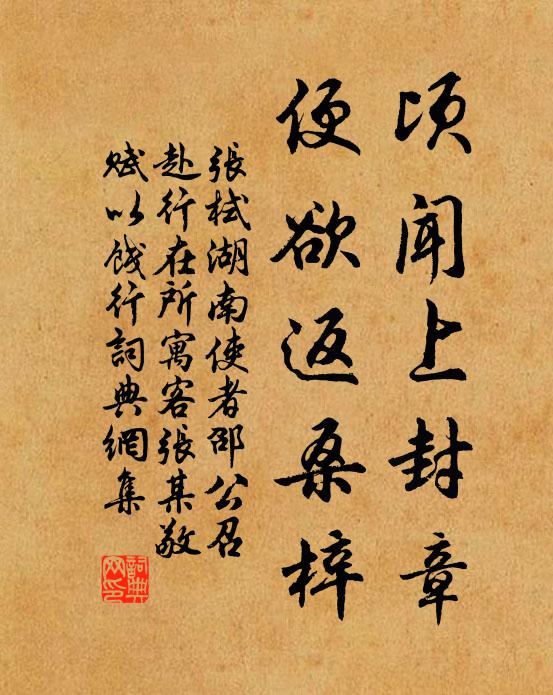 頃闻上封章
便欲返桑梓
張栻湖南使者邵公召
赴行在所寓客張某敬
赋以餞行詞典網集
詞典网印